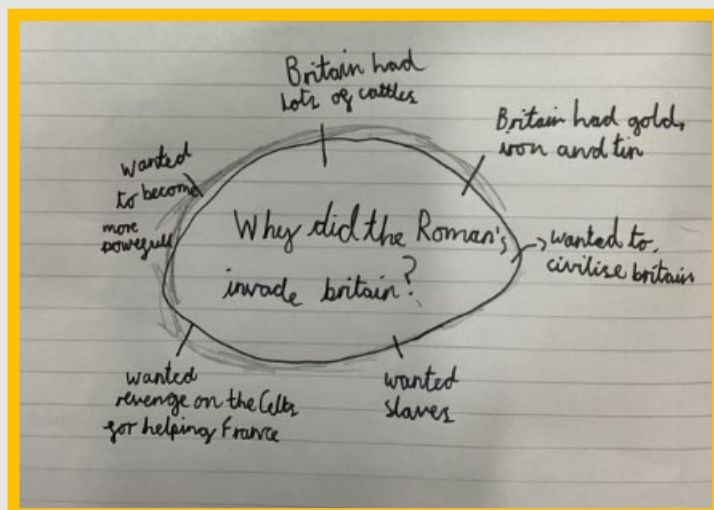 Why did the Roman's
invade britain?
Britain had
Lots of cattles
Britain had gold,
iron and tin
wanted to
civilise britain
wanted
slaves
wanted
revenge on the Celts
for helping France
wanted
to become
more
powefull